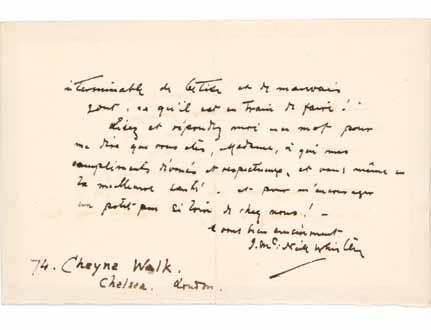 interminable de bêtise et de mauvais
gout, ce qu'il est en train de faire!
Lisez et répondez moi un mot pour
me dire que vous êtes, Madame, à qui mes
compliments dévoués et respectueux, et vous même en
la meilleure santé. et pour m'encourager
un petit peu si loin de chez nous! —
à vous bien sincèrement
J. McNeill Whistler
74. Cheyne Walk.
Chelsea. London.